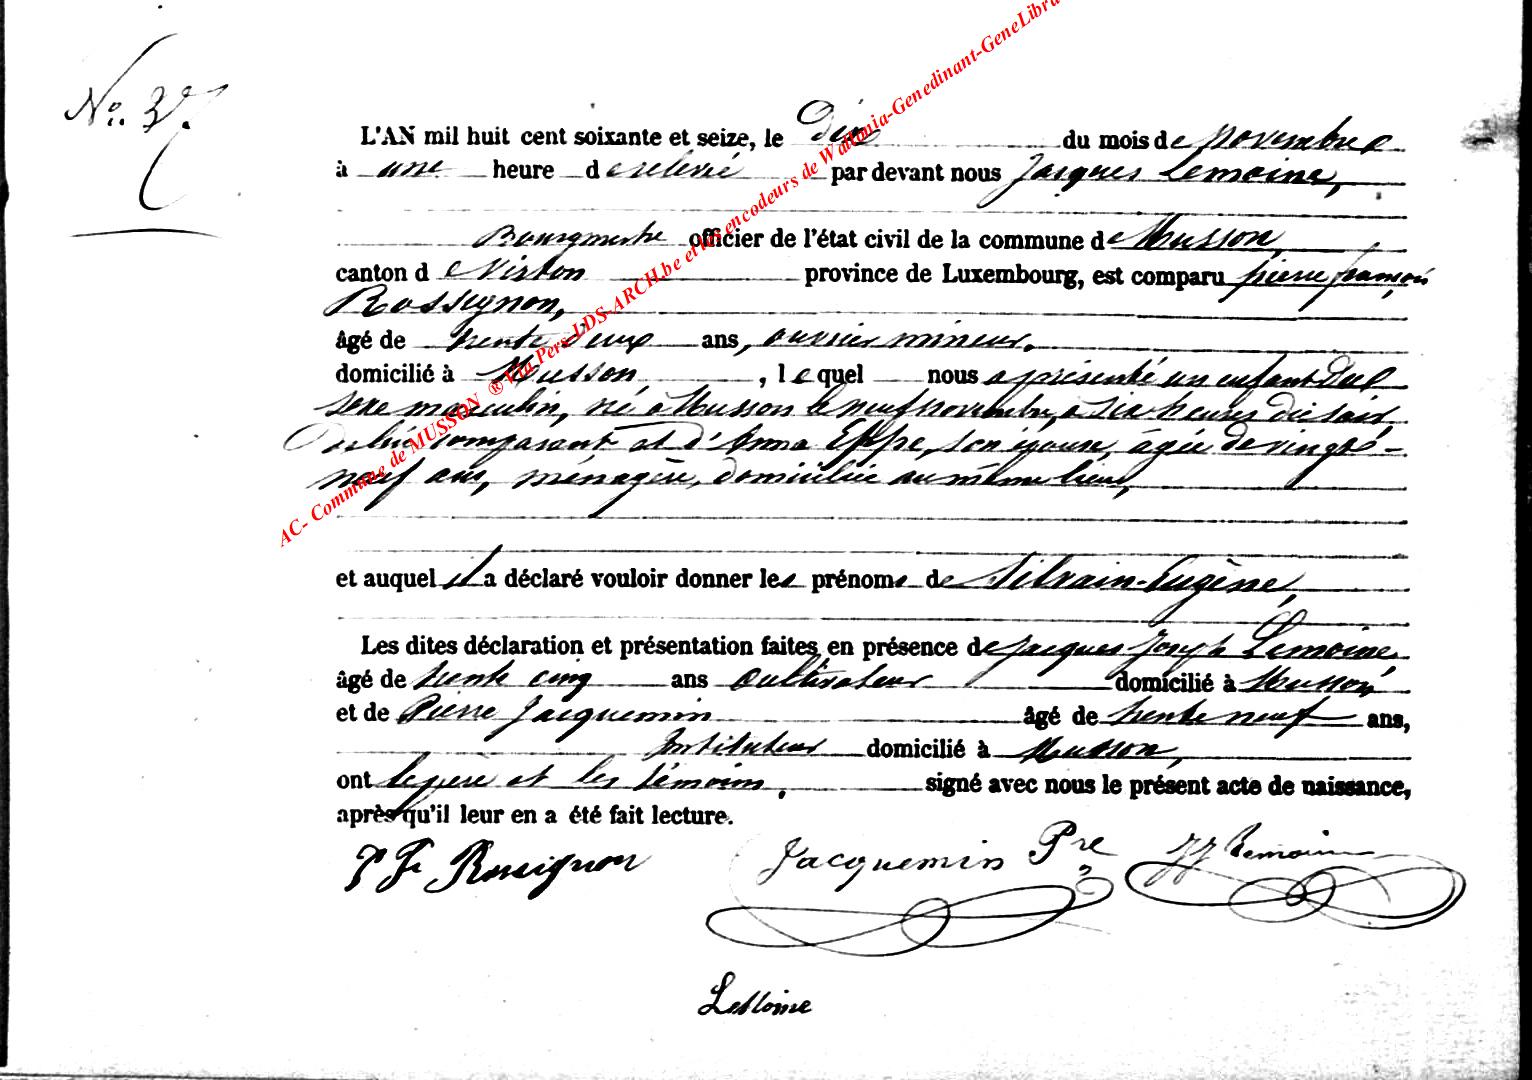 No. 37.
L'AN mil huit cent soixante et seize, le Dix du mois de novembre
à une heure de relevé par devant nous Jacques Lemoine,
Bourgmestre officier de l'état civil de la commune de Musson,
canton de Virton province de Luxembourg, est comparu pierre françois
Rossignon,
âgé de trente deux ans, ouvrier mineur,
domicilié à Musson, lequel nous a présenté un enfant du
sexe masculin, né à Musson le neuf novembre, à six heures du soir
De lui comparant et d'Anna Eppe, son épouse, âgée de vingt-
neuf ans, ménagère, domiciliée au même lieu,
et auquel il a déclaré vouloir donner les prénoms de Silvain-Eugène,
Les dites déclaration et présentation faites en présence de Jacques Joseph Lemoine
âgé de trente cinq ans cultivateur domicilié à Musson,
et de Pierre Jacquemin âgé de trente neuf ans,
Instituteur domicilié à Musson,
ont le père et les témoins, signé avec nous le présent acte de naissance,
après qu'il leur en a été fait lecture.
P Fr Rossignon Jacquemin Pre JJ Lemoine
Lemoine
AC- Commune de MUSSON ® Via Pers LDS-ARCH.be et les encodeurs de Wallonia-Genedinant-GeneLibra